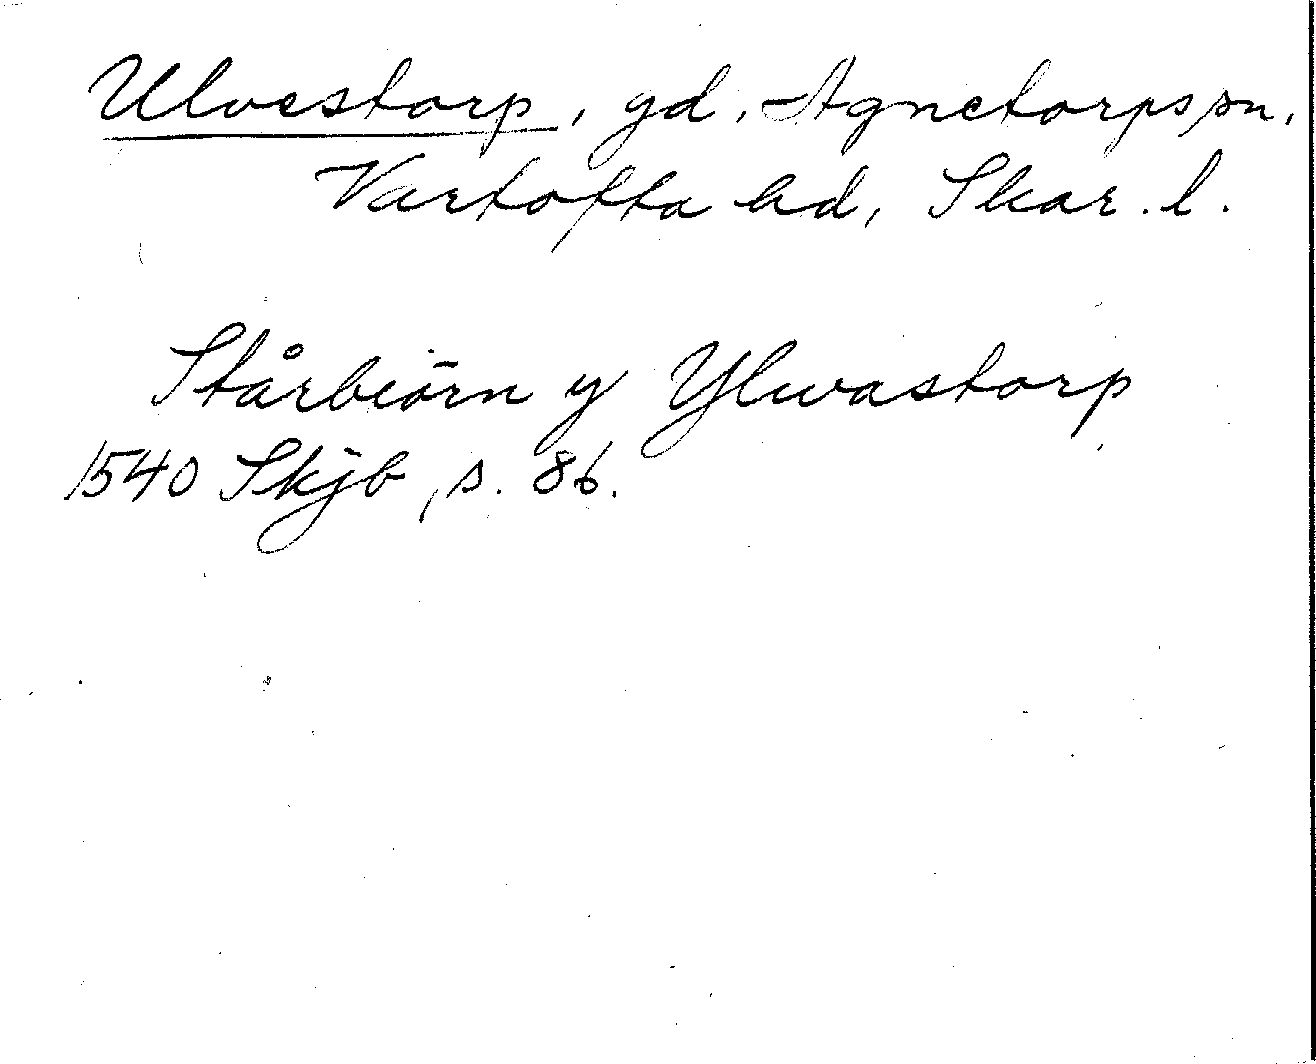 Ulvestorp, gd, Agnetorps sn,
Vartofta hd, Skar. l.
Stårbiörn y Ylwastorp
1540 Skjb, s. 86.